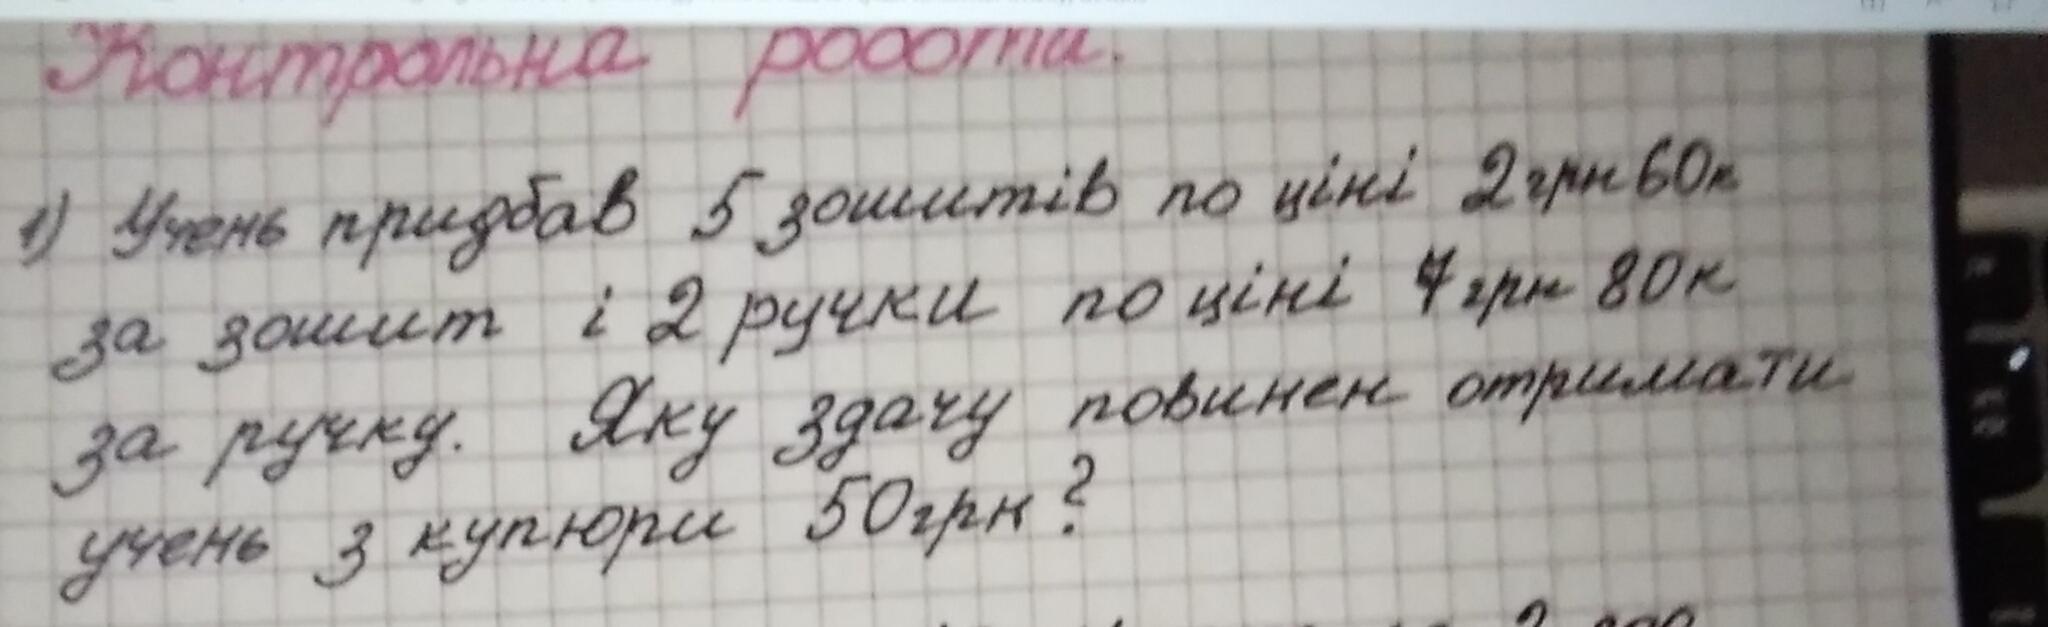 Контрольна робота.
1) Учень придбав 5 зошитів по ціні 2грн60к
за зошит і 2 ручки по ціні 7грн 80к
за ручку. Яку здачу повинен отримати
учень з купюри 50грн?